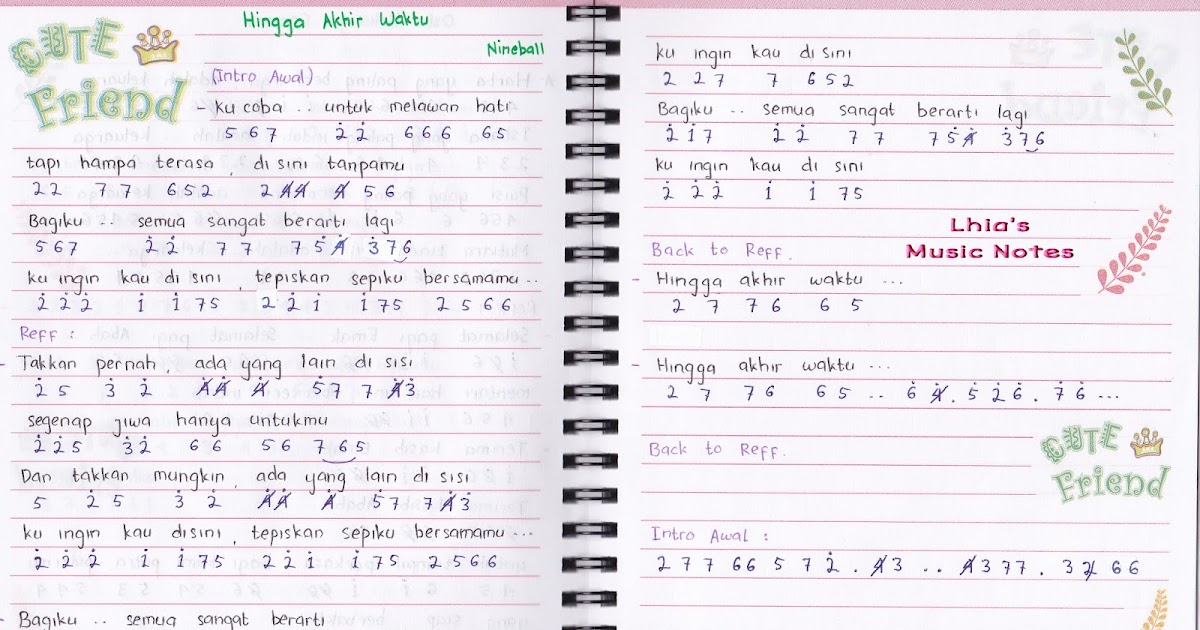 CUTE
Friend
Hingga Akhir Waktu
Nineball
(Intro Awal)
- Ku coba .. untuk melawan hati
5 6 7 2 2 6 6 6 6 5
tapi hampa terasa, di sini tanpamu
2 2 7 7 6 5 2 2 4 4 4 5 6
Bagiku .. semua sangat berarti lagi
5 6 7 2 2 7 7 7 5 4 3 7 6
ku ingin kau di sini, tepiskan sepiku bersamamu ..
2 2 2 1 1 7 5 2 2 1 1 7 5 2 5 6 6
Reff :
- Takkan pernah ada yang lain di sisi
2 5 3 2 4 4 4 5 7 7 4 3
segenap jiwa hanya untukmu
2 2 5 3 2 6 6 5 6 7 6 5
Dan takkan mungkin, ada yang lain di sisi
5 2 5 3 2 4 4 4 5 7 7 4 3
ku ingin kau disini, tepiskan sepiku bersamamu ...
2 2 2 1 1 7 5 2 2 1 1 7 5 2 5 6 6
- Bagiku .. semua sangat berarti
ku ingin kau di sini
2 2 7 7 6 5 2
Bagiku .. semua sangat berarti lagi
2 1 7 2 2 7 7 7 5 4 3 7 6
ku ingin kau di sini
2 2 2 1 1 7 5
Lhia's
Music Notes
Back to Reff.
- Hingga akhir waktu ...
2 7 7 6 6 5
- Hingga akhir waktu ...
2 7 7 6 6 5 .. 6 4 . 5 2 6 . 7 6 ...
Back to Reff.
CUTE
Friend
Intro Awal :
2 7 7 6 6 5 7 2 . 4 3 .. 4 3 7 7 . 3 2 6 6